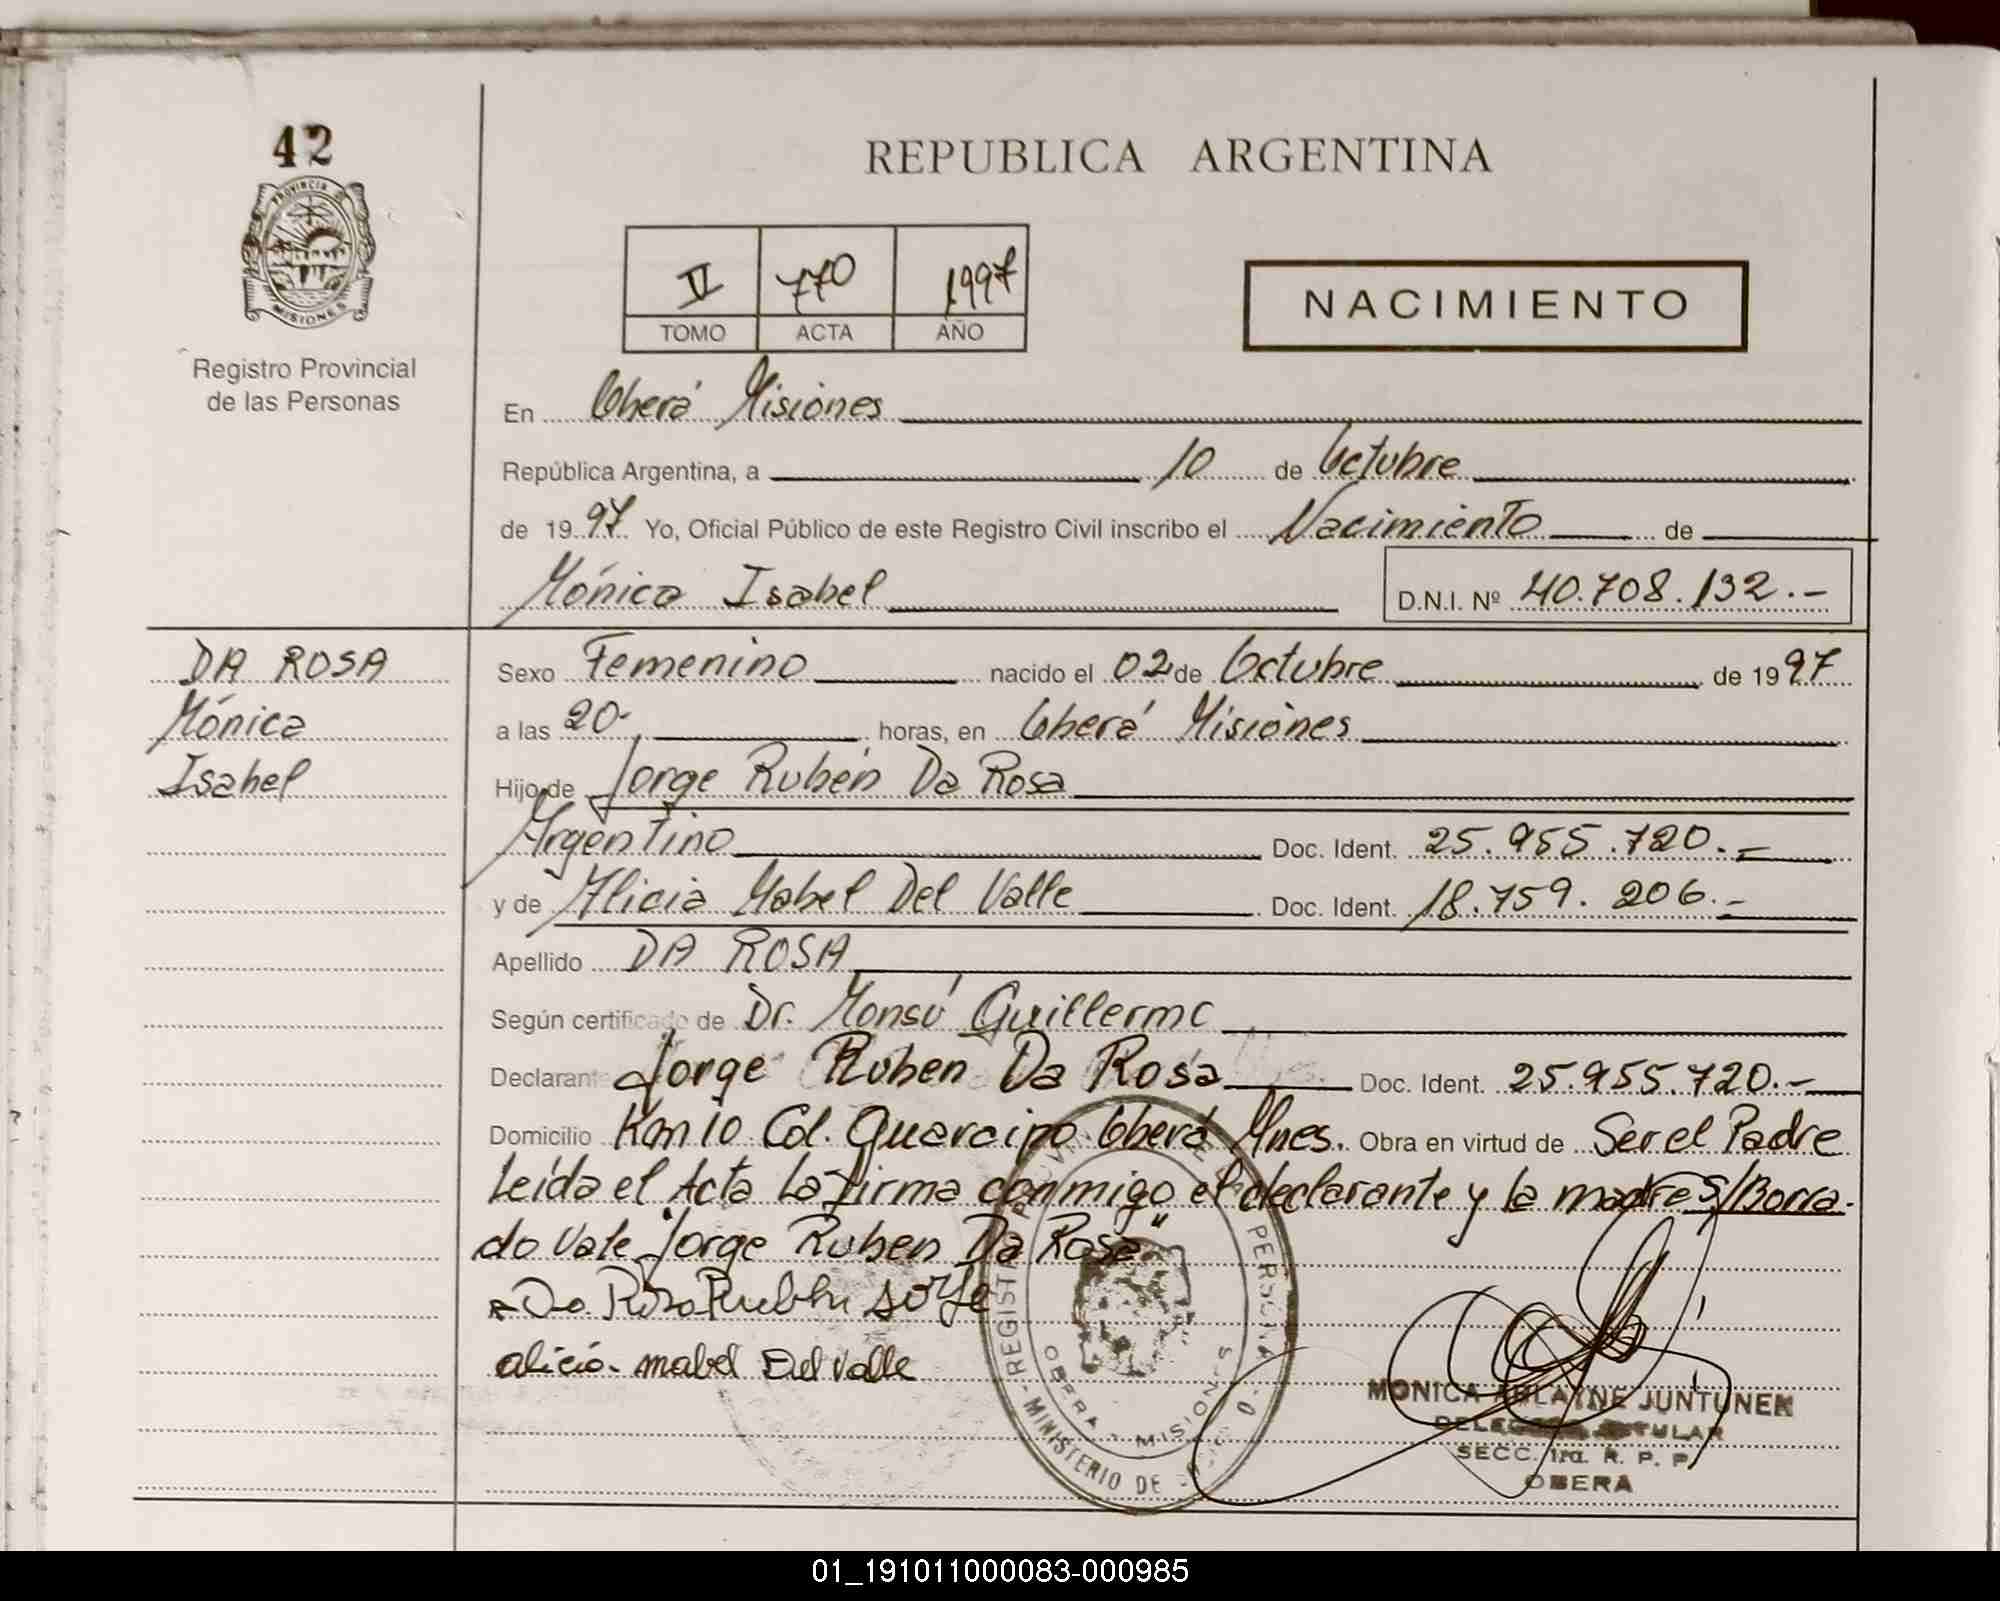 42
PROVINCIA D
MISIONES
Registro Provincial
de las Personas
REPUBLICA ARGENTINA
II 770 1997
TOMO ACTA AÑO
NACIMIENTO
En Oberá Misiones
República Argentina, a 10 de Octubre
de 1997 Yo, Oficial Público de este Registro Civil inscribo el Nacimiento de
Mónica Isabel D.N.I. Nº 40.708.132.-
DA ROSA
Mónica
Isabel
Sexo Femenino nacido el 02 de Octubre de 1997
a las 20- horas, en Oberá Misiones
Hijo de Jorge Rubén Da Rosa
Argentino Doc. Ident. 25.955.720.-
y de Alicia Mabel Del Valle Doc. Ident. 18.759.206.-
Apellido DA ROSA
Según certificado de Dr. Monsú Guillermo
Declarante Jorge Ruben Da Rosa Doc. Ident. 25.955.720.-
Domicilio Km 10 Col. Guaraipo Oberá Mnes. Obra en virtud de Ser el Padre
Leída el Acta La firma conmigo el declarante y la madre S/Borra-
do Vale "Jorge Ruben Da Rosa"
Da Rosa Rubén Jorge
alicia mabel Del Valle
REGISTRO PERSONA
MINISTERIO DE
OBERA - MISIONES
MONICA JUNTUNEN
TITULAR
SECC. 1ra. R. P. P.
OBERA
01_191011000083-000985